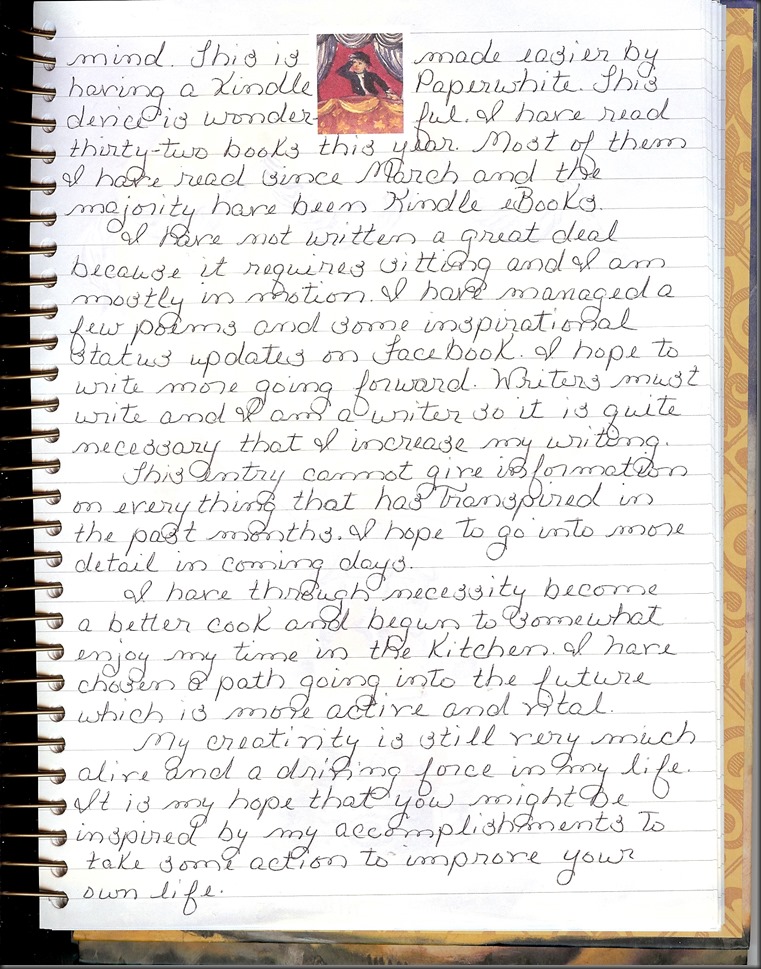 mind. This is made easier by
having a Kindle Paperwhite. This
device is wonder-ful. I have read
thirty-two books this year. Most of them
I have read since March and the
majority have been Kindle eBooks.
I have not written a great deal
because it requires sitting and I am
mostly in motion. I have managed a
few poems and some inspirational
status updates on Facebook. I hope to
write more going forward. Writers must
write and I am a writer so it is quite
necessary that I increase my writing.
This entry cannot give information
on everything that has transpired in
the past months. I hope to go into more
detail in coming days.
I have through necessity become
a better cook and begun to somewhat
enjoy my time in the kitchen. I have
chosen a path going into the future
which is more active and vital.
My creativity is still very much
alive and a driving force in my life.
It is my hope that you might be
inspired by my accomplishments to
take some action to improve your
own life.